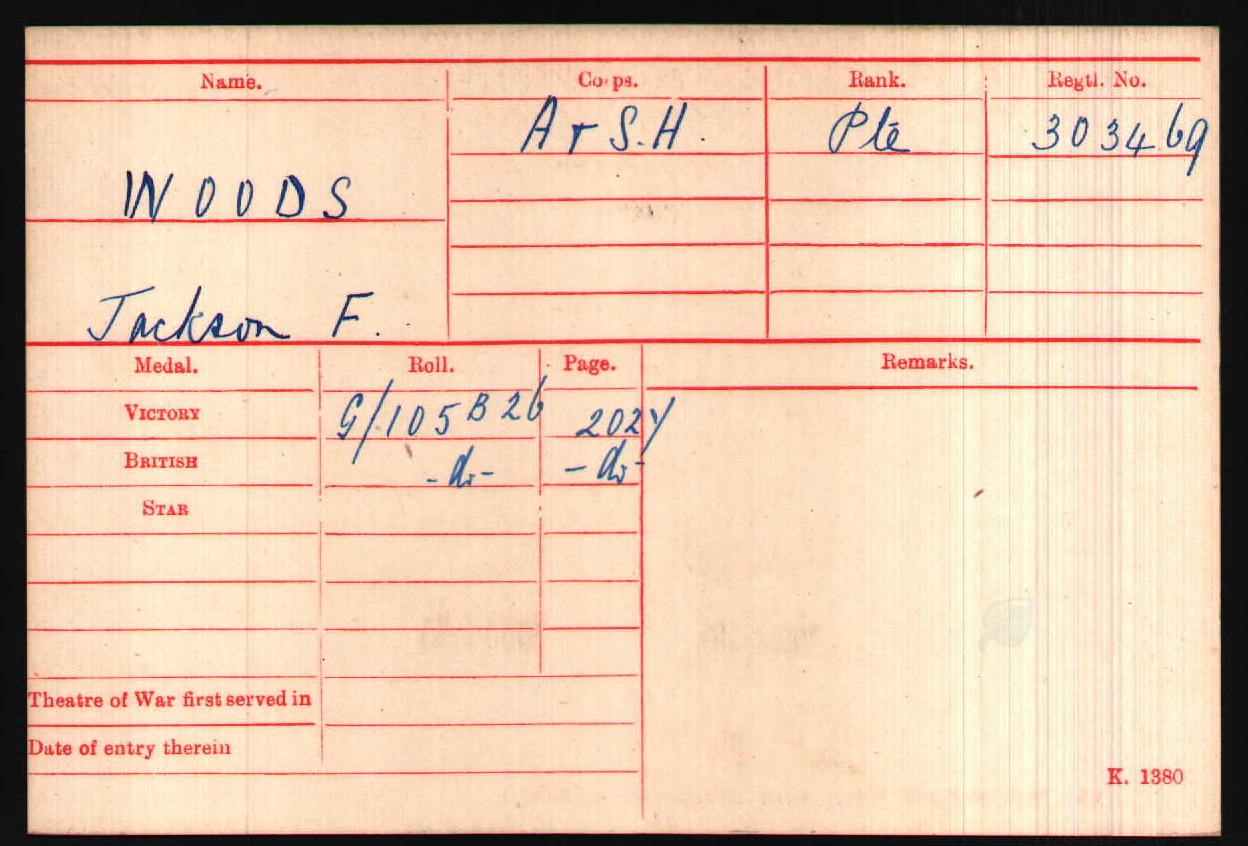 Name. Corps. Rank. Regtl. No.
WOODS A & S.H. Pte 303469
Jackson F.
Medal. Roll. Page. Remarks.
VICTORY G/105 B 26 2024
BRITISH -do- -do-
STAR
Theatre of War first served in
Date of entry therein
K. 1380